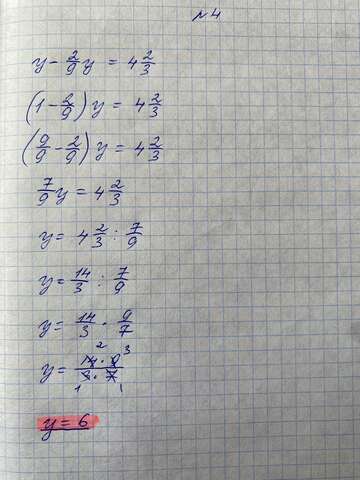 №4
y - 2/9 y = 4 2/3
(1 - 2/9) y = 4 2/3
(9/9 - 2/9) y = 4 2/3
7/9 y = 4 2/3
y = 4 2/3 : 7/9
y = 14/3 : 7/9
y = 14/3 · 9/7
y = 14 2 · 9 3 / 3 1 · 7 1
y = 6